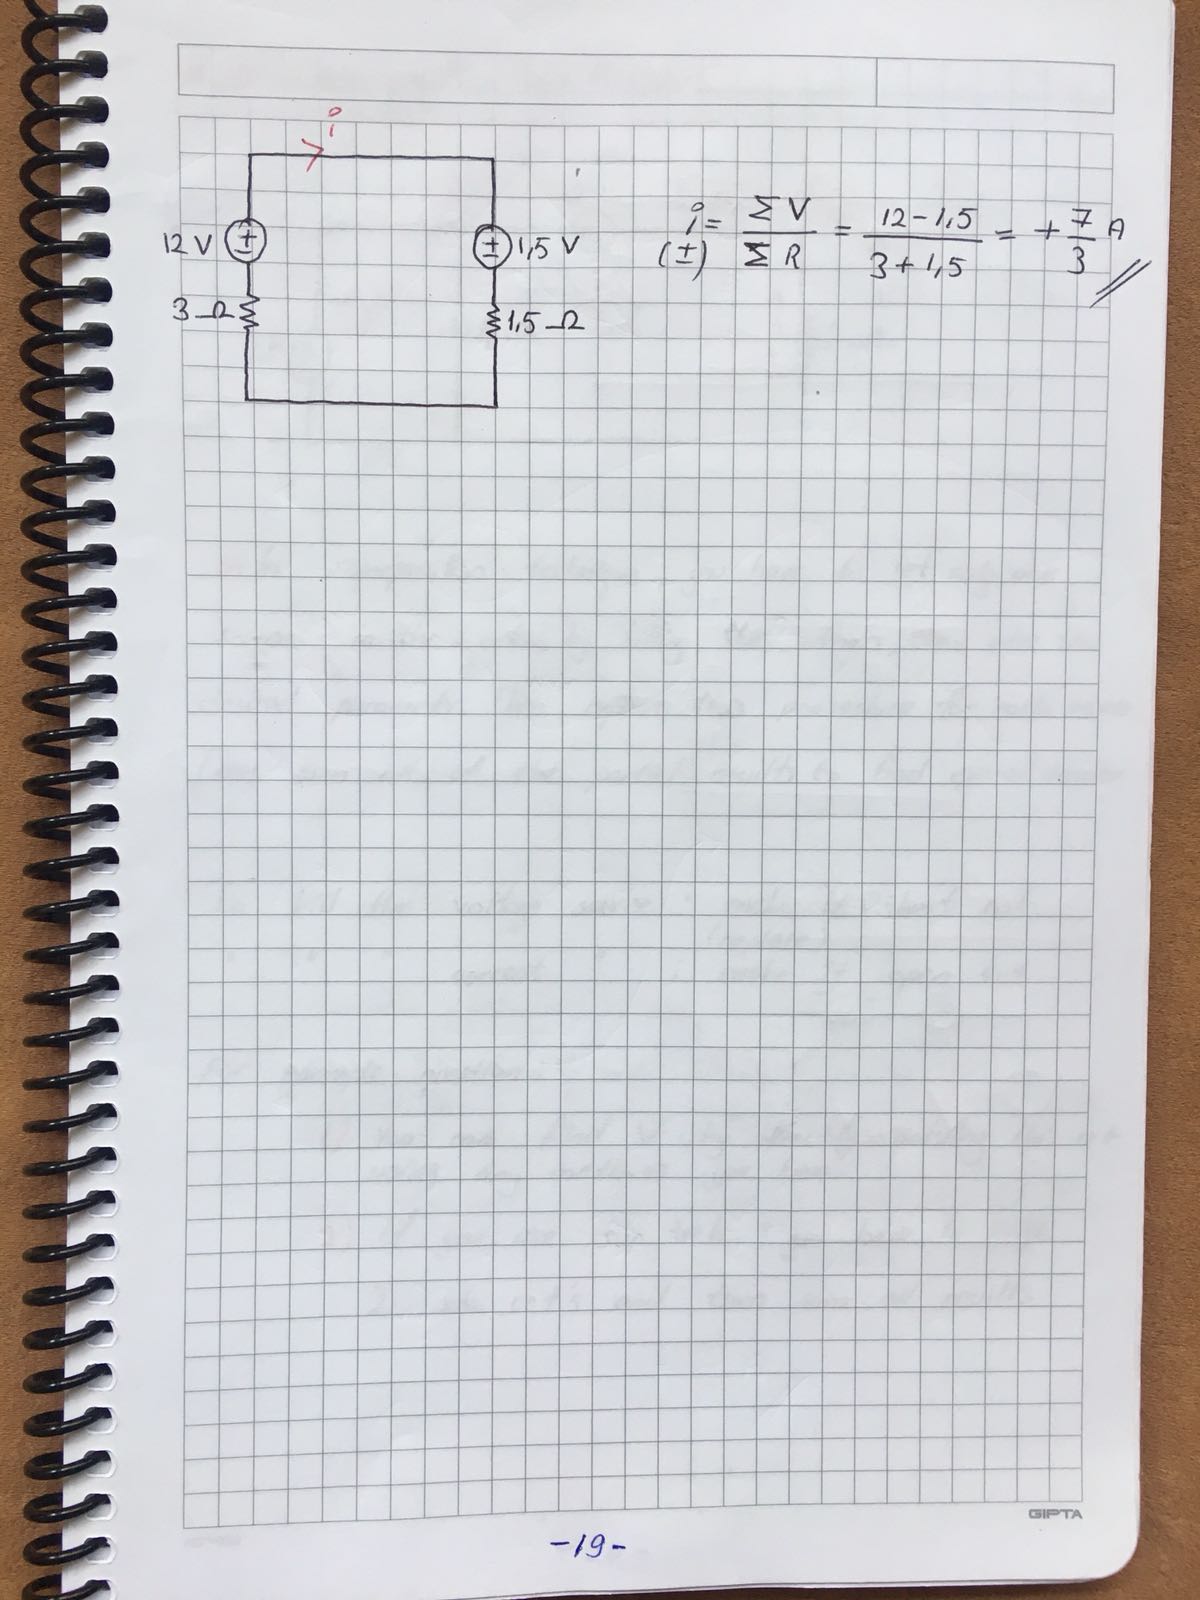 i
12 V
±
± 1,5 V
3 Ω
1,5 Ω
i = ΣV / ΣR = 12-1,5 / 3+1,5 = + 7/3 A
(±)
GIPTA
-19-